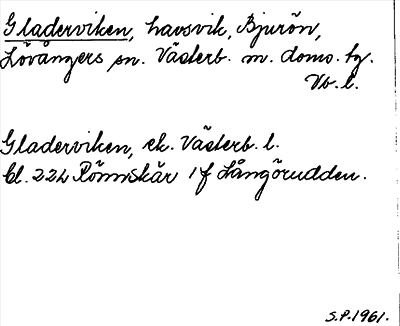 Gladerviken, havsvik, Bjurön,
Lövångers sn. Västerb. m. doms. tg.
Vb. l.
Gladerviken, ek. Västerb. l.
bl. 22L Rönnskär 1 f Långörudden.
S.P. 1961.